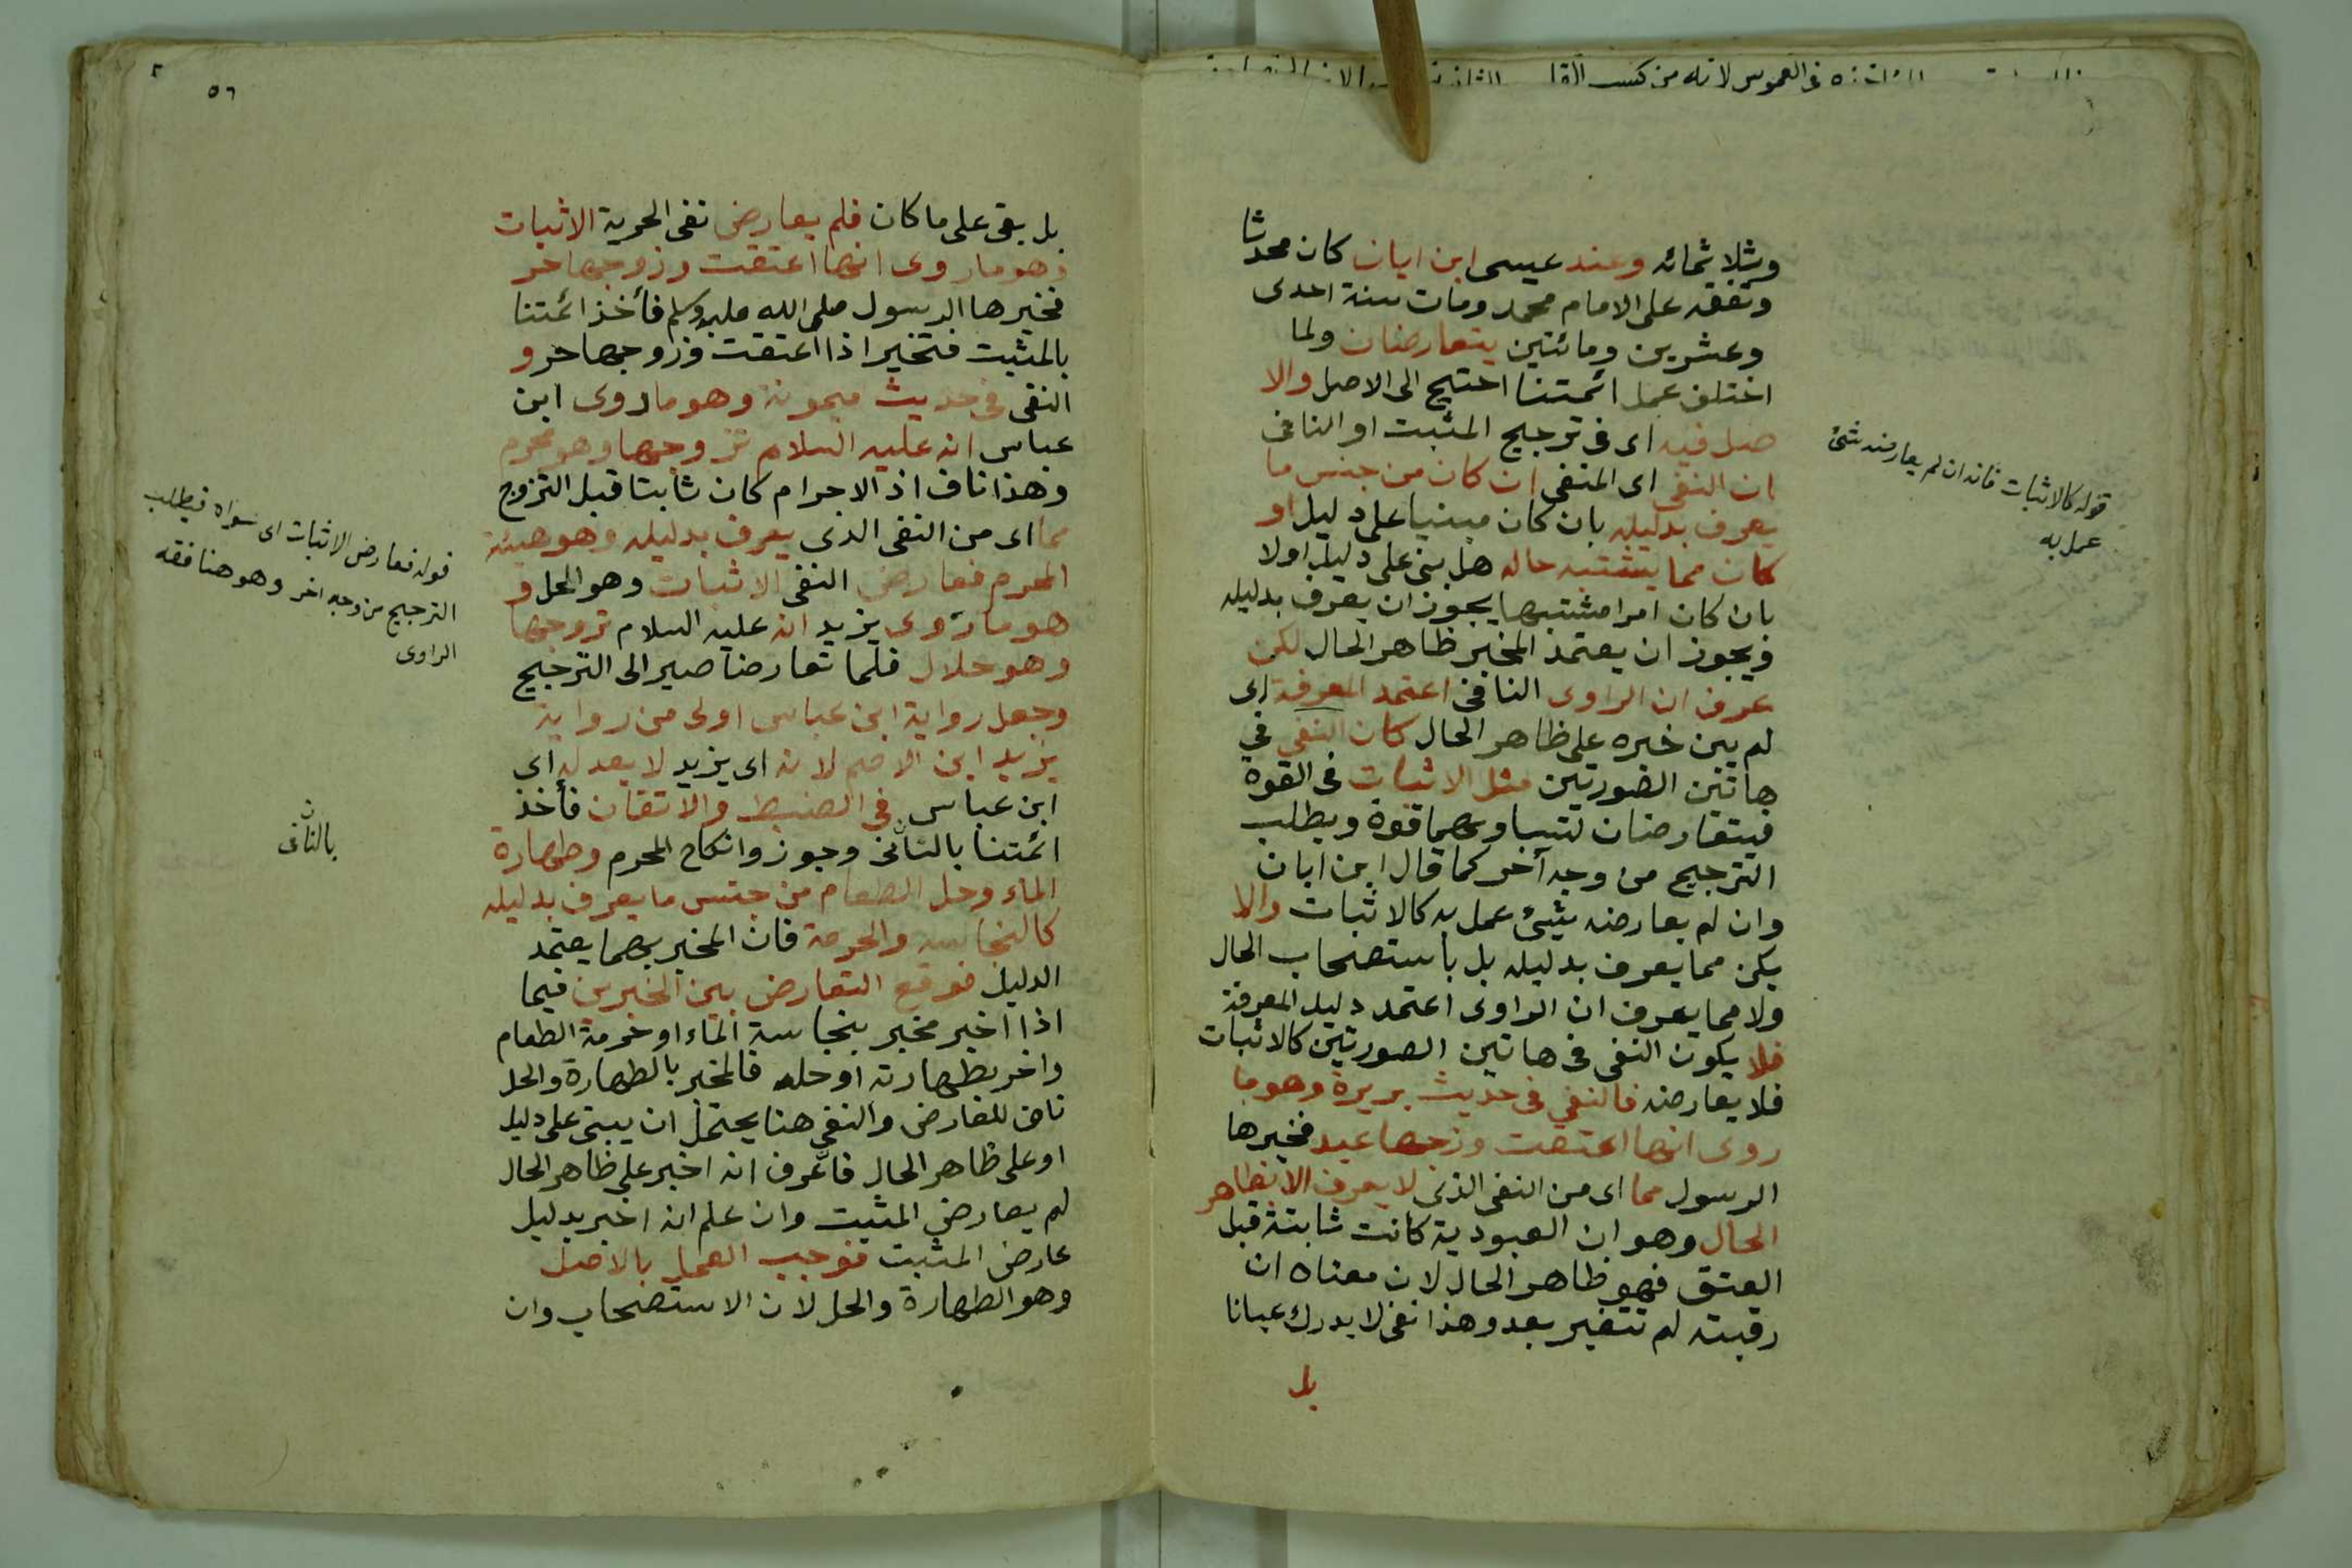 في الغموس لانه من كسب القلب
وثلاثمائه وعند عيسى ابن ابان كان محدثا
وتفقه على الامام محمد ومات سنة احدى
وعشرين ومائتين يتعارضان ولما
اختلف عمل ائمتنا احتيج الى الاصل والا
صل فيه اى فى ترجيح المثبت او النافى
ان النفى اى المنفى ان كان من جنس ما
يعرف بدليله بان كان مبنيا على دليل او
كان مما يشتبه حاله هل بنى على دليل اولا
بان كان امرا مشتبها يجوز ان يعرف بدليله
ويجوز ان يعتمد المخبر ظاهر الحال لكن
عرف ان الراوى النافى اعتمد المعرفة اى
لم يبن خبره على ظاهر الحال كان النفى في
هاتين الصورتين مثل الاثبات فى القوة
فيتعارضان لتساويهما قوة ويطلب
الترجيح من وجه آخر كما قال ابن ابان
وان لم يعارضه شئ عمل به كالاثبات والا
يكن مما يعرف بدليله بل باستصحاب الحال
ولا مما يعرف ان الراوى اعتمد دليل المعرفة
فلا يكون النفى فى هاتين الصورتين كالاثبات
فلا يعارضه فالنفى فى حديث بريرة وهو ما
روى انها اعتقت وزجها عبد فخيرها
الرسول مما اى من النفى الذى لا يعرف الا بظاهر
الحال وهو ان العبودية كانت ثابتة قبل
العتق فهو ظاهر الحال لان معناه ان
رقيته لم تتغير بعد وهذا نفى لا يدرك عيانا
بل
قوله كالاثبات فانه ان لم يعارضه شئ
عمل به
٥٦
بل بقى على ما كان فلم يعارض نفى الحرية الاثبات
وهو ما روى انها اعتقت وزوجها حر
فخيرها الرسول صلى الله عليه وسلم فأخذ ائمتنا
بالمثبت فتخير اذا اعتقت وزوجها حر و
النفى فى حديث ميمونة وهو ما روى ابن
عباس انه عليه السلام تزوجها وهو محرم
وهذا ناف اذ الاحرام كان ثابتا قبل التزوج
مما اى من النفى الذى يعرف بدليله وهو هيئة
المحرم فعارض النفى الاثبات وهو الحل و
هو ما روى يزيد انه عليه السلام تزوجها
وهو حلال فلما تعارضا صير الى الترجيح
وجعل رواية ابن عباس اولى من رواية
يزيد ابن الاصم لانه اى يزيد لا يعدله اى
ابن عباس فى الضبط والاتقان فأخذ
ائمتنا بالنافى وجوزوا نكاح المحرم وطهارة
الماء وحل الطعام من جنس ما يعرف بدليله
كالنجاسه والحرمة فان المخبر بهما يعتمد
الدليل فوقع التعارض بين الخبرين فيما
اذا اخبر مخبر بنجاسة الماء او حرمة الطعام
واخر بطهارته او حله فالمخبر بالطهارة والحل
ناف للعارض والنفى هنا يحتمل ان يبتى على دليل
او على ظاهر الحال فاعرف انه اخبر على ظاهر الحال
لم يعارض المثبت وان علم انه اخبر بدليل
عارض المثبت فوجب العمل بالاصل
وهو الطهارة والحل لان الاستصحاب وان
قوله فعارض الاثبات اى سواه فيطلب
الترجيح من وجه اخر وهو هنا فقه
الراوى
ن
بالنافى